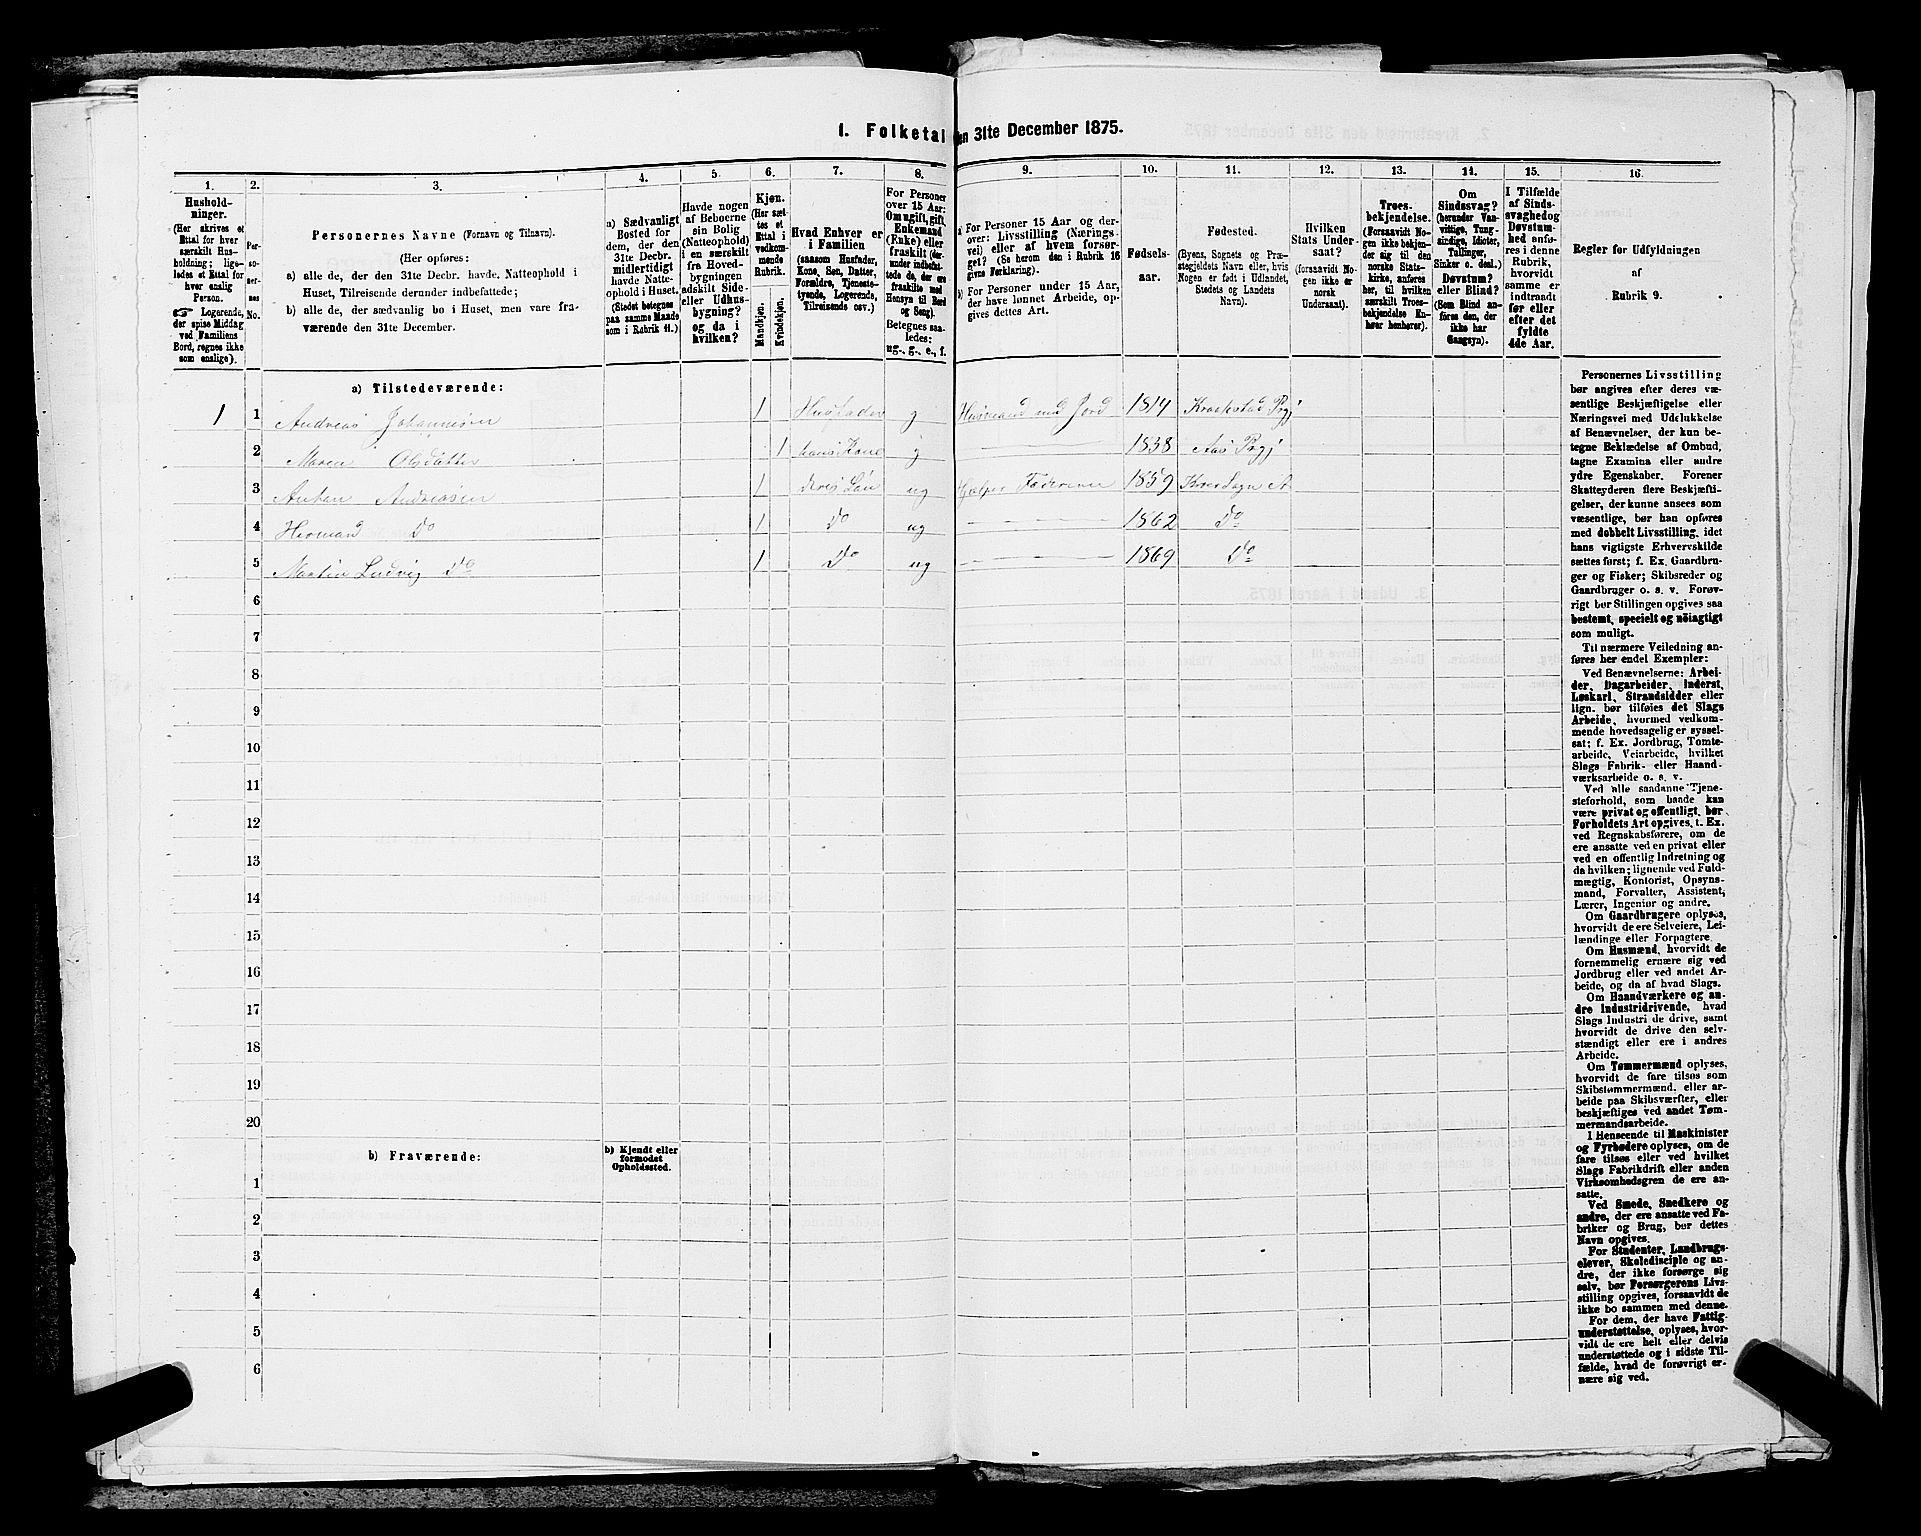 1. Folketal den 31te December 1875.
1.
Hushold-
ninger.
(Her skrives et
Ettal for hver
særskilt Hus-
holdning; lige-
ledes et Ettal for
hver enslig
Person.
☞ Logerende,
der spise Middag
ved Familiens
Bord, regnes ikke
som enslige).
2.
Per-
so-
ner-
nes
No.
3.
Personernes Navne (Fornavn og Tilnavn).
(Her opføres:
a) alle de, der den 31te Decbr. havde. Natteophold i
Huset, Tilreisende derunder indbefattede;
b) alle de, der sædvanlig bo i Huset, men vare fra-
værende den 31te December.
4.
a) Sædvanligt
Bosted for
dem, der den
31te Decbr.
midlertidigt
havde Natte-
ophold i Huset.
(Stedet betegnes
paa samme Maade
som i Rubrik 11.)
5.
Havde nogen
af Beboerne
sin Bolig
(Natteophold)
i en særskilt
fra Hoved-
bygningen
adskilt Side-
eller Udhus-
bygning?
og da i
hvilken?
6.
Kjøn.
(Her sæt-
tes et
Ettal i
vedkom-
mende
Rubrik.
Mandkjøn.
Kvindekjøn.
7.
Hvad Enhver er
i Familien
(saasom Husfader,
Kone, Søn, Datter,
Forældre, Tjeneste-
tyende, Logerende,
Tilreisende osv.)
8.
For Personer
over 15 Aar:
Om ugift, gift,
Enkemand
(Enke) eller
fraskilt (der-
under indbefat-
tede de, der ere
fraskilte med
Hensyn til Bord
og Seng).
Betegnes saa-
ledes:
ug., g., e., f.
9.
a) For Personer 15 Aar og der-
over: Livsstilling (Nærings-
vei) eller af hvem forsør-
get? (Se herom den i Rubrik 16
givne Forklaring).
b) For Personer under 15 Aar,
der have lønnet Arbeide, op-
gives dettes Art.
10.
Fødsels-
aar.
11.
Fødested.
(Byens, Sognets og Præ-
stegjeldets Navn eller, hvis
Nogen er født i Udlandet,
Stedets og Landets
Navn).
12.
Hvilken
Stats Under-
saat?
(forsaavidt No-
gen ikke er
norsk
Undersaat).
13.
Troes-
bekjendelse.
(Forsaavidt No-
gen ikke bekjen-
der sig til den
norske Stats-
kirke, anføres
her, til hvilken
særskilt Troes-
bekjendelse En-
hver henhører).
14.
Om
Sindssvag?
(herunder Van-
vittige, Tung-
sindige, Idioter,
Tullinger,
Sinker o. desl.)
Døvstum?
eller Blind?
(Som Blind an-
føres den, der
ikke har
Gangsyn).
15.
I Tilfælde
af Sinds-
svaghed og
Døvstum-
hed anfø-
res i denne
Rubrik,
hvorvidt
samme er
indtraadt
før eller
efter det
fyldte
4de Aar.
16.
Regler for Udfyldningen
af
Rubrik 9.
a) Tilstedeværende:
1 1 Andreas Johannesen 1 Husfader g Husmand med Jord 1814 Kraakstad Prgj
2 Maren Olsdatter 1 hans Kone g 1838 Aas Prgj
3 Anton Andreasen 1 deres Søn ug Hjelper Faderen 1859
4 Herman Do 1 Do ug 1862 Do
5 Martin Ludvig Do 1 Do ug 1869 Do
6
7
8
9
10
11
12
13
14
15
16
17
18
19
20
b) Fraværende:
b) Kjendt eller
formodet
Opholdssted.
1
2
3
4
5
6
Personernes Livsstilling
bør angives efter deres væ-
sentlige Beskjæftigelse eller
Næringsvei med Udelukkelse
af Benævnelser, der kun be-
tegne Beklædelse af Ombud,
tagne Examina eller andre
ydre Egenskaber. Forener
Skatteyderen flere Beskjæfti-
gelser, der kunne ansees som
væsentlige, bør han opføres
med dobbelt Livsstilling, idet
hans vigtigste Erhvervskilde
sættes først; f. Ex. Gaardbru-
ger og Fisker; Skibsreder og
Gaardbruger o. s. v. Forøv-
rigt bør Stillingen opgives saa
bestemt, specielt og nøiagtigt
som muligt.
Til nærmere Veiledning an-
føres her endel Exempler:
Ved Benævnelserne: Arbei-
der, Dagarbeider, Inderst,
Løskarl, Strandsidder eller
lign. bør tilføies det Slags
Arbeide, hvormed vedkom-
mende hovedsagelig er syssel-
sat; f. Ex. Jordbrug, Tomte-
arbeide, Veiarbeide, hvilket
Slags Fabrik- eller Haand-
værksarbeide o. s. v.
Ved alle saadanne Tjene-
steforhold, som baade kan
være privat og offentligt, bør
Forholdets Art opgives, t. Ex.
ved Regnskabsførere, om de
ere ansatte ved en privat eller
ved en offentlig Indretning og
da hvilken; lignende ved Fuld-
mægtig, Kontorist, Opsyns-
mand, Forvalter, Assistent,
Lærer, Ingeniør og andre.
Om Gaardbrugere oplyses,
hvorvidt de ere Selveiere, Lei-
lændinge eller Forpagtere.
Om Husmænd, hvorvidt de
fornemmelig ernære sig ved
Jordbrug eller ved andet Ar-
beide, og da af hvad Slags.
Om Haandværkere og an-
dre Industridrivende, hvad
Slags Industri de drive, samt
hvorvidt de drive den selv-
stændigt eller ere i andres
Arbeide.
Om Tømmermænd oplyses,
hvorvidt de fare tilsøs som
Skibstømmermænd, eller ar-
beide paa Skibsværfter, eller
beskjæftiges ved andet Tøm-
mermandsarbeide.
I Henseende til Maskinister
og Fyrbødere oplyses, om de
fare tilsøs eller ved hvilket
Slags Fabrikdrift eller anden
Virksomhedsgren de ere an-
satte.
Ved Smede, Snedkere og
andre, der ere ansatte ved Fa-
briker og Brug, bør dettes
Navn opgives.
For Studenter, Landbrugs-
elever, Skoledisciple og an-
dre, der ikke forsørge sig
selv, bør Forsørgerens Livs-
stilling opgives, forsaavidt de
ikke bo sammen med denne.
For dem, der have Fattig-
understøttelse, oplyses, hvor-
vidt de ere helt eller delvis
understøttede og i sidste Til-
fælde, hvad de forøvrigt er-
nære sig ved.